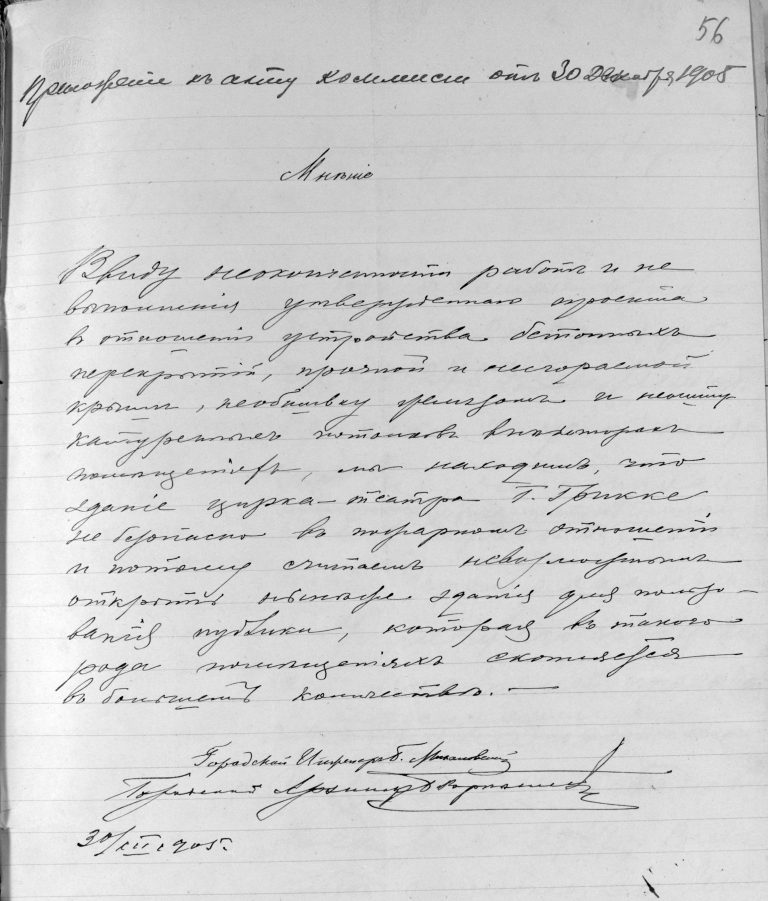 56
Приложение къ акту коммисіи отъ 30 Декабря 1905
Мнѣніе
Ввиду неоконченности работъ и не
выполненія утвержденнаго проекта
в отношеніи устройства бетонныхъ
перекрытій, прочной и несгораемой
крыши, необшивку и
потолковъ в некоторыхъ
помѣщеніяхъ, мы находимъ, что
зданіе цирка-театра Г. Грикке
не безопасно въ пожарномъ отношеніи
и потому считаемъ невозможнымъ
открыть нынѣ же зданія для пользо-
ванія публики, которая въ такого
рода помѣщеніяхъ скопляется
въ большемъ количествѣ. —
Городской Инженеръ
Городской
30/XII 1905.